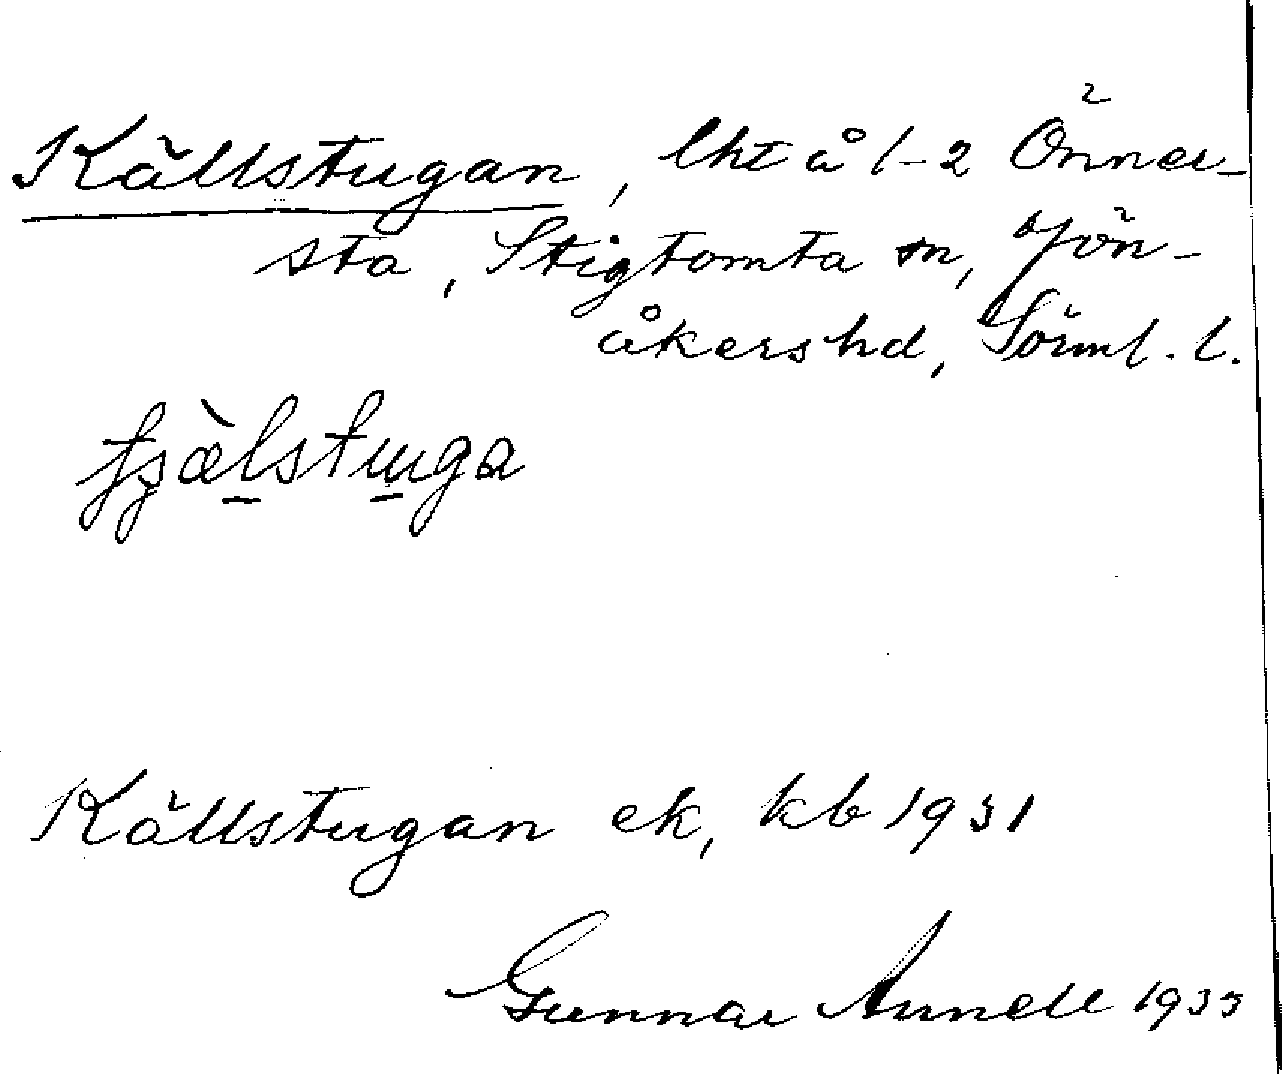 Källstugan, lht å 1-2 Önner-
sta, Stigtomta sn, Jön-
åkers hd, Sörml. l.
tʂæ̀lstɯga
Källstugan ek, kb 1931
Gunnar Annell 1933